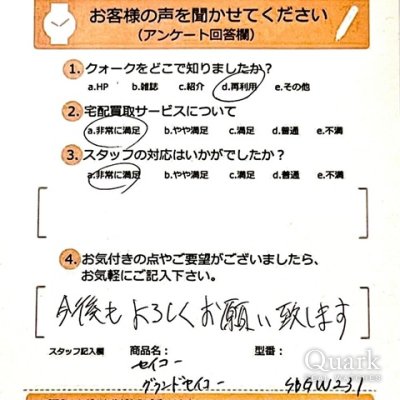 お客様の声を聞かせてください
(アンケート回答欄)
1. クォークをどこで知りましたか？
a.HP b.雑誌 c.紹介 d.再利用 e.その他
2. 宅配買取サービスについて
a.非常に満足 b.やや満足 c.満足 d.普通 e.不満
3. スタッフの対応はいかがでしたか？
a.非常に満足 b.やや満足 c.満足 d.普通 e.不満
4. お気付きの点やご要望がございましたら、
お気軽にご記入下さい。
今後もよろしくお願い致します
スタッフ記入欄 商品名： 型番：
セイコー
グランドセイコー SBGW231
Quark